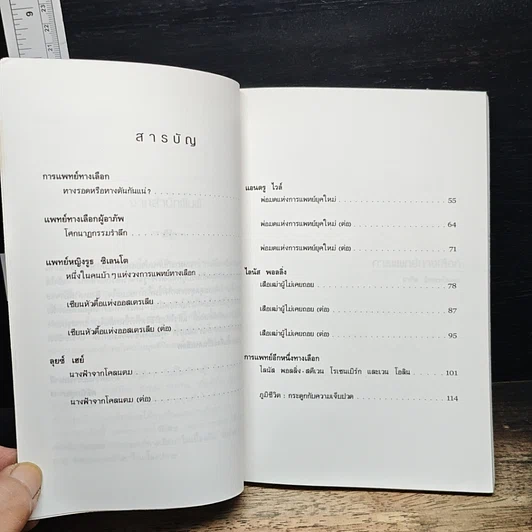 9
สารบัญ
การแพทย์ทางเลือก
ทางรอดหรือทางตันกันแน่?
แพทย์ทางเลือกผู้อาภัพ
โศกนาฏกรรมรำลึก
แพทย์หญิงรูธ ซิเลนโต
หนึ่งในคนบ้าๆ แห่งวงการแพทย์ทางเลือก
เซียนหัวดื้อแห่งออสเตรเลีย
เซียนหัวดื้อแห่งออสเตรเลีย (ต่อ)
ลุยซ์ เฮย์
นางฟ้าจากโคลนตม
นางฟ้าจากโคลนตม (ต่อ)
แอนดรู ไวล์
พ่อมดแห่งการแพทย์ยุคใหม่ 55
พ่อมดแห่งการแพทย์ยุคใหม่ (ต่อ) 64
พ่อมดแห่งการแพทย์ยุคใหม่ (ต่อ) 71
ไลนัส พอลลิ่ง
เสือเฒ่าผู้ไม่เคยถอย 78
เสือเฒ่าผู้ไม่เคยถอย (ต่อ) 87
เสือเฒ่าผู้ไม่เคยถอย (ต่อ) 95
การแพทย์อีกหนึ่งทางเลือก
ไลนัส พอลลิ่ง-สตีเวน โรเซนเบิร์ก และเวน โอลิน 101
ภูมิชีวิต : กระดูกกับความเจ็บปวด 114